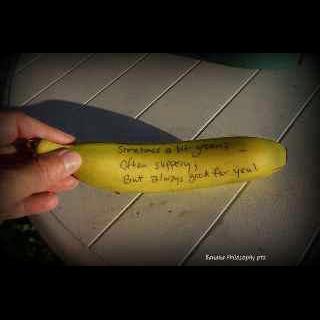 Sometimes a bit green;
Often slippery;
But always good for you!
Banana Philosophy pt2